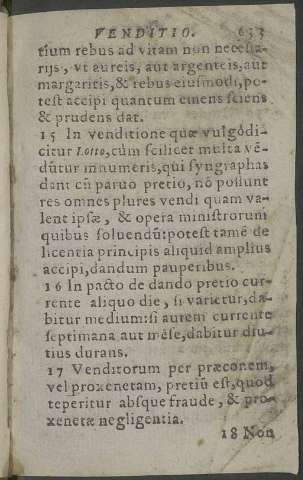 VENDITIO. 633
tium rebus ad vitam non necessa-
rijs, vt aureis, aut argenteis, aut
margaritis, & rebus eiusmodi, po-
test accipi quantum emens sciens
& prudens dat.
15 In venditione quæ vulgò di-
citur Lotto, cùm scilicet multa vē-
dūtur innumeris, qui syngraphas
dant cū paruo pretio, nō possunt
res omnes plures vendi quam va-
lent ipsæ, & opera ministrorum
quibus soluendūt potest tamē de
licentia principis aliquid amplius
accipi, dandum pauperibus.
16 In pacto de dando pretio cur-
rente aliquo die, si varietur, da-
bitur medium: si autem currente
septimana aut mēse, dabitur diu-
tius durans.
17 Venditorum per præconem,
vel proxenetam, pretiū est, quod
reperitur absque fraude, & pro-
xenetæ negligentia.
18 Non